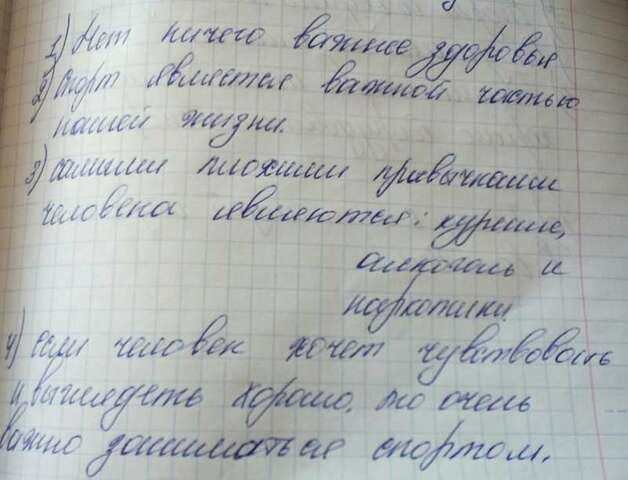 1) Нет ничего важнее здоровья
2) спорт является важной частью
нашей жизни.
3) самыми плохими привычками
человека являются: курение,
алкоголь и
наркотики.
4) если человек хочет чувствовать
и выглядеть хорошо, то очень
важно заниматься спортом.